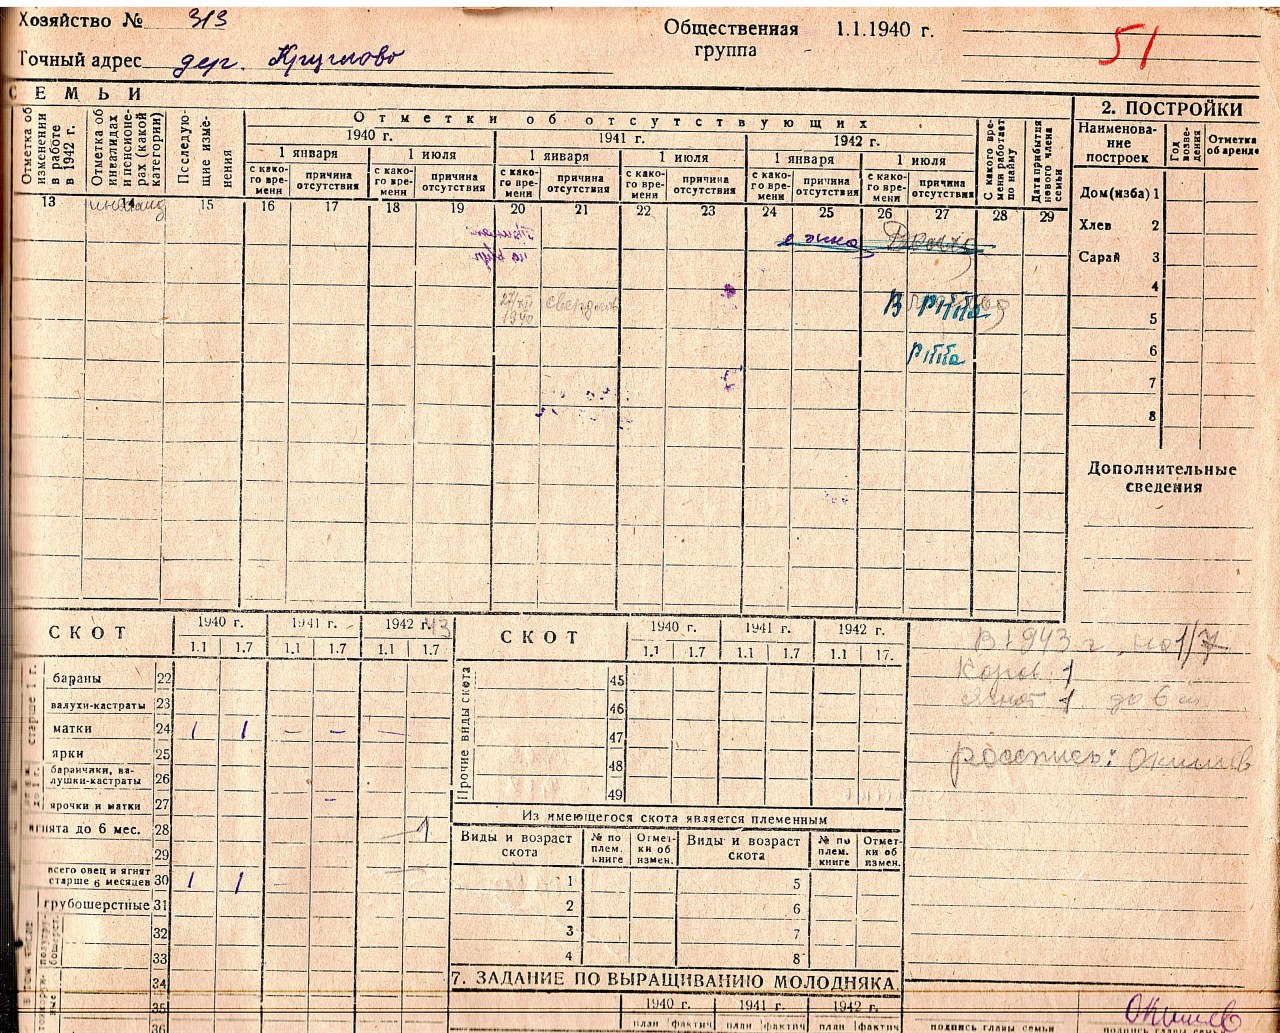 Хозяйство № 313
Общественная группа 1.1.1940 г.
51
Точный адрес дер. Круглово
СЕМЬИ
2. ПОСТРОЙКИ
Отметка об изменении в работе в 1942 г.
Отметка об инвалидах и пенсионерах (какой категории)
Последующие изменения
Отметки об отсутствующих
1940 г. 1941 г. 1942 г.
1 января 1 июля 1 января 1 июля 1 января 1 июля
с какого времени причина отсутствия с какого времени причина отсутствия с какого времени причина отсутствия с какого времени причина отсутствия с какого времени причина отсутствия с какого времени причина отсутствия
С какого времени работает по найму
Дата прибытия нового члена семьи
Наименование построек
Год возведения
Отметка об аренде
13 14 15 16 17 18 19 20 21 22 23 24 25 26 27 28 29
инвалид
Дом(изба) 1
Хлев 2
Сарай 3
4
5
6
7
8
1940
В РККА
РККА
Дополнительные
сведения
СКОТ 1940 г. 1941 г. 1942 г. 43
1.1 1.7 1.1 1.7 1.1 1.7
старше 1 г.
бараны 22
валухи-кастраты 23
матки 24 1 1 — — —
ярки 25
до 1 г.
баранчики, валушки-кастраты 26
ярочки и матки 27 -
ягнята до 6 мес. 28 — 1
29
всего овец и ягнят старше 6 месяцев 30 1 1 — —
грубошерстные 31
32
33
34
35
36
СКОТ 1940 г. 1941 г. 1942 г.
1.1 1.7 1.1 1.7 1.1 17.
Прочие виды скота
45
46
47
48
49
Из имеющегося скота является племенным
Виды и возраст скота № по плем. книге Отметки об измен. Виды и возраст скота № по плем. книге Отметки об измен.
1 5
2 6
3 7
4 8
7. ЗАДАНИЕ ПО ВЫРАЩИВАНИЮ МОЛОДНЯКА
1940 г. 1941 г. 1942 г.
план фактич план фактич план фактич
В 1943 г. на 1/7
Коров. 1
1 до 6 м
роспись: Окишев
Окишев
подпись главы семьи подпись главы семьи